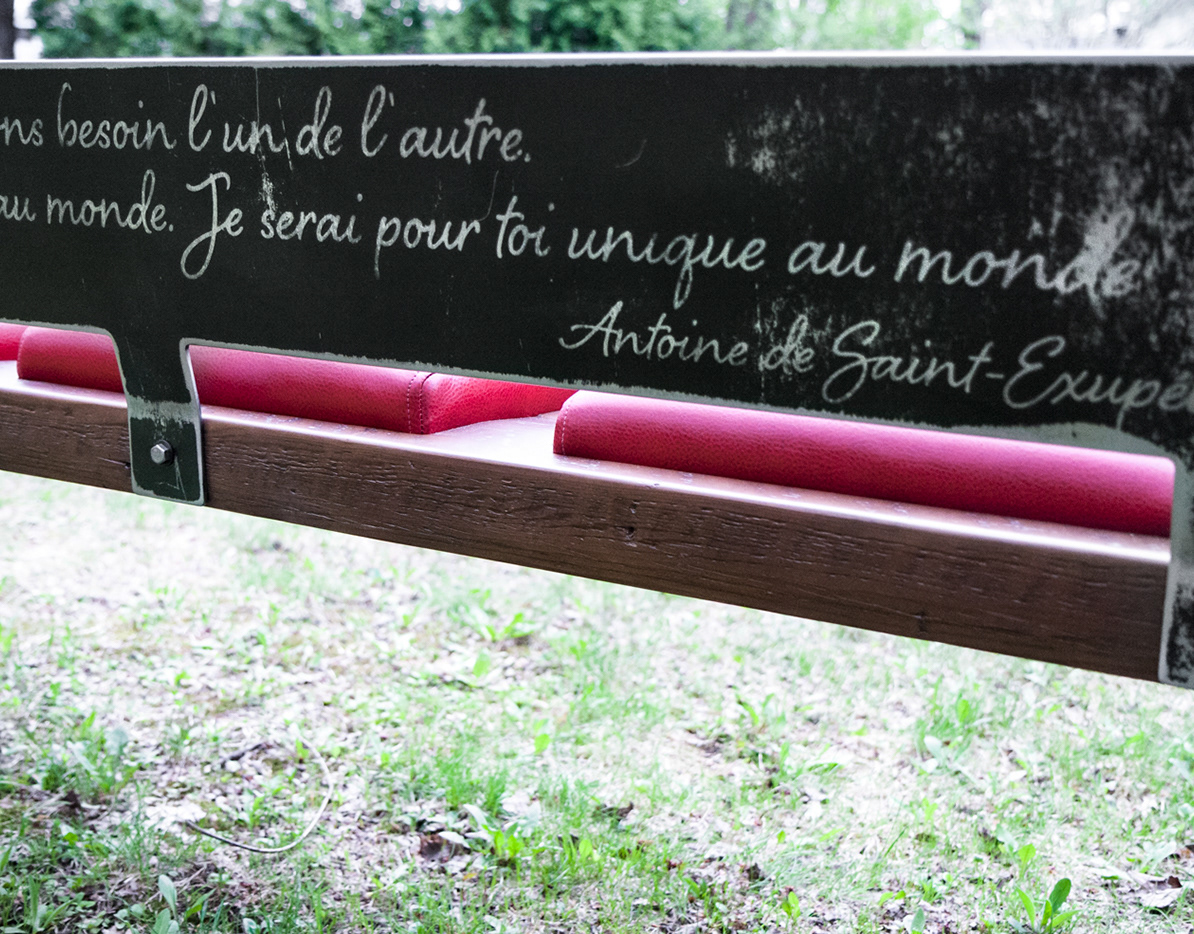 ns besoin l'un de l'autre.
au monde. Je serai pour toi unique au monde
Antoine de Saint-Exupé